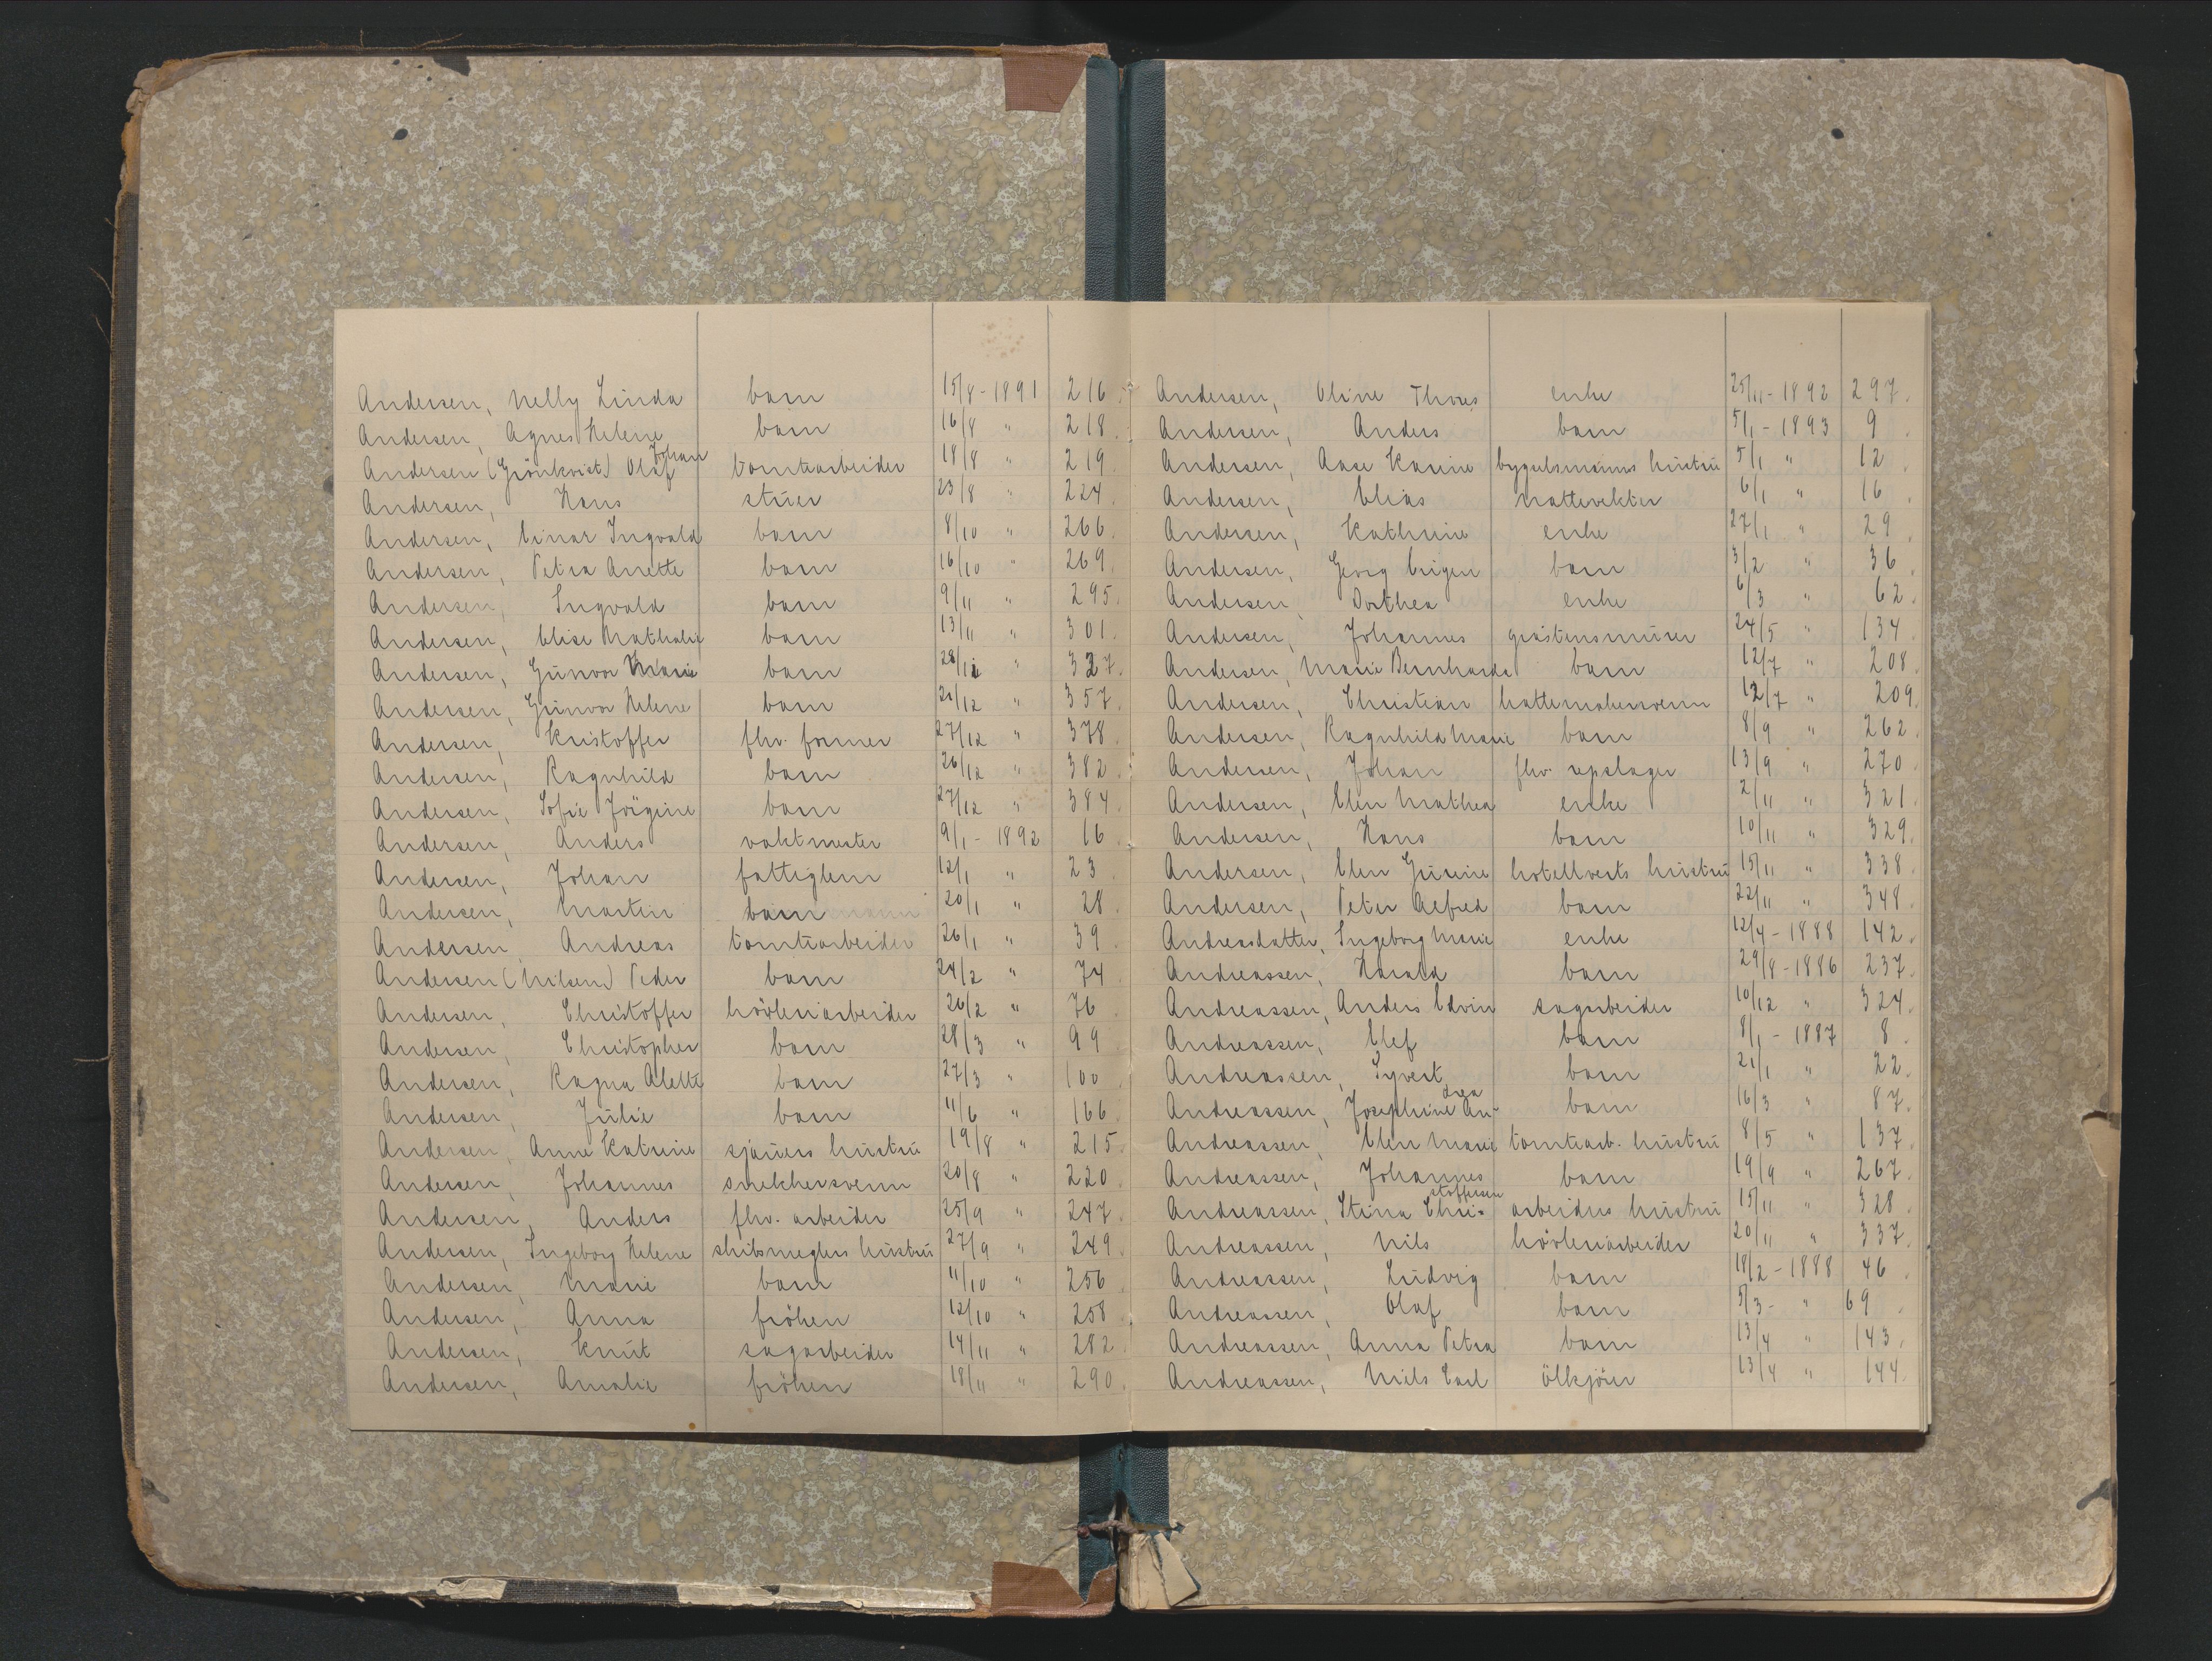 Andersen, Nelly Linda barn 15/8 - 1891 216.
Andersen, Agnes Helene barn 16/8 " 218.
Andersen (Grönkvist) Olaf Johan tomtearbeider 18/8 " 219.
Andersen, Hans stuer 23/8 " 224.
Andersen, Einar Ingvald barn 8/10 " 266.
Andersen, Petra Anette barn 16/10 " 269.
Andersen, Ingvald barn 9/11 " 295.
Andersen, Elise Mathalie barn 13/11 " 301.
Andersen, Gunvor Marie barn 28/12 " 327.
Andersen, Gunvor Helene barn 21/12 " 357.
Andersen, Kristoffer fhv. former 27/12 " 378.
Andersen, Ragnhild barn 26/12 " 382.
Andersen, Sofie Jörgine barn 27/12 " 384.
Andersen, Anders vaktmester 9/1 - 1892 16.
Andersen, Johan fattiglem 12/1 " 23.
Andersen, Martin barn 20/1 " 28.
Andersen, Andreas tomtearbeider 26/1 " 39.
Andersen (Nilsen) Peder barn 24/2 " 74.
Andersen, Christoffer hövleriarbeider 26/2 " 76.
Andersen, Christopher barn 28/3 " 99.
Andersen, Ragna Alette barn 27/3 " 100.
Andersen, Julie barn 11/6 " 166.
Andersen, Anne Katrine sjauers hustru 19/8 " 215.
Andersen, Johannes snekkersvenn 20/8 " 220.
Andersen, Anders fhv. arbeider 25/9 " 247.
Andersen, Ingeborg Helene skibsmeglers hustru 27/9 " 249.
Andersen, Marie barn 11/10 " 256.
Andersen, Anna fröken 12/10 " 258.
Andersen, Knut sagarbeider 14/11 " 282.
Andersen, Amalie fröken 18/11 " 290.
Andersen, Oline enke 25/11 - 1892 297.
Andersen, Anders barn 5/1 - 1893 9.
Andersen, Aase Karine bygselsmanns hustru 5/1 " 12.
Andersen, Elias nattevekter 6/1 " 16.
Andersen, Kathrine enke 27/1 " 29.
Andersen, Georg Eugen barn 3/2 " 36.
Andersen, Dorthea enke 6/3 " 62.
Andersen, Johannes gråstensmurer 24/5 " 134.
Andersen, Marie Bernharda barn 12/7 " 208.
Andersen, Christian hattemakersvenn 12/7 " 209.
Andersen, Ragnhild Marie barn 8/9 " 262.
Andersen, Johan fhv. repslager 13/9 " 270.
Andersen, Elen Mathea enke 2/11 " 321.
Andersen, Hans barn 10/11 " 329.
Andersen, Elen Gurine hotellverts hustru 15/11 " 338.
Andersen, Peter Alfred barn 22/11 " 348.
Andreasdatter, Ingeborg Marie enke 12/4 - 1888 142.
Andreassen, Harald barn 29/8 - 1886 237.
Andreassen, Anders Edvin sagarbeider 10/12 " 324.
Andreassen, Elef barn 8/1 - 1887 8.
Andreassen, Syvert barn 21/1 " 22.
Andreassen, Josephine Andrea barn 16/3 " 87.
Andreassen, Elen Marie tomtearb. hustru 8/5 " 137.
Andreassen, Johannes barn 19/9 " 267.
Andreassen, Stina Christoffersen arbeiders hustru 15/11 " 328.
Andreassen, Nils hövleriarbeider 20/11 " 337.
Andreassen, Ludvig barn 18/2 - 1888 46.
Andreassen, Olaf barn 5/3 - " 69.
Andreassen, Anna Petra barn 13/4 " 143.
Andreassen, Nils Carl ölkjörer 13/4 " 144.